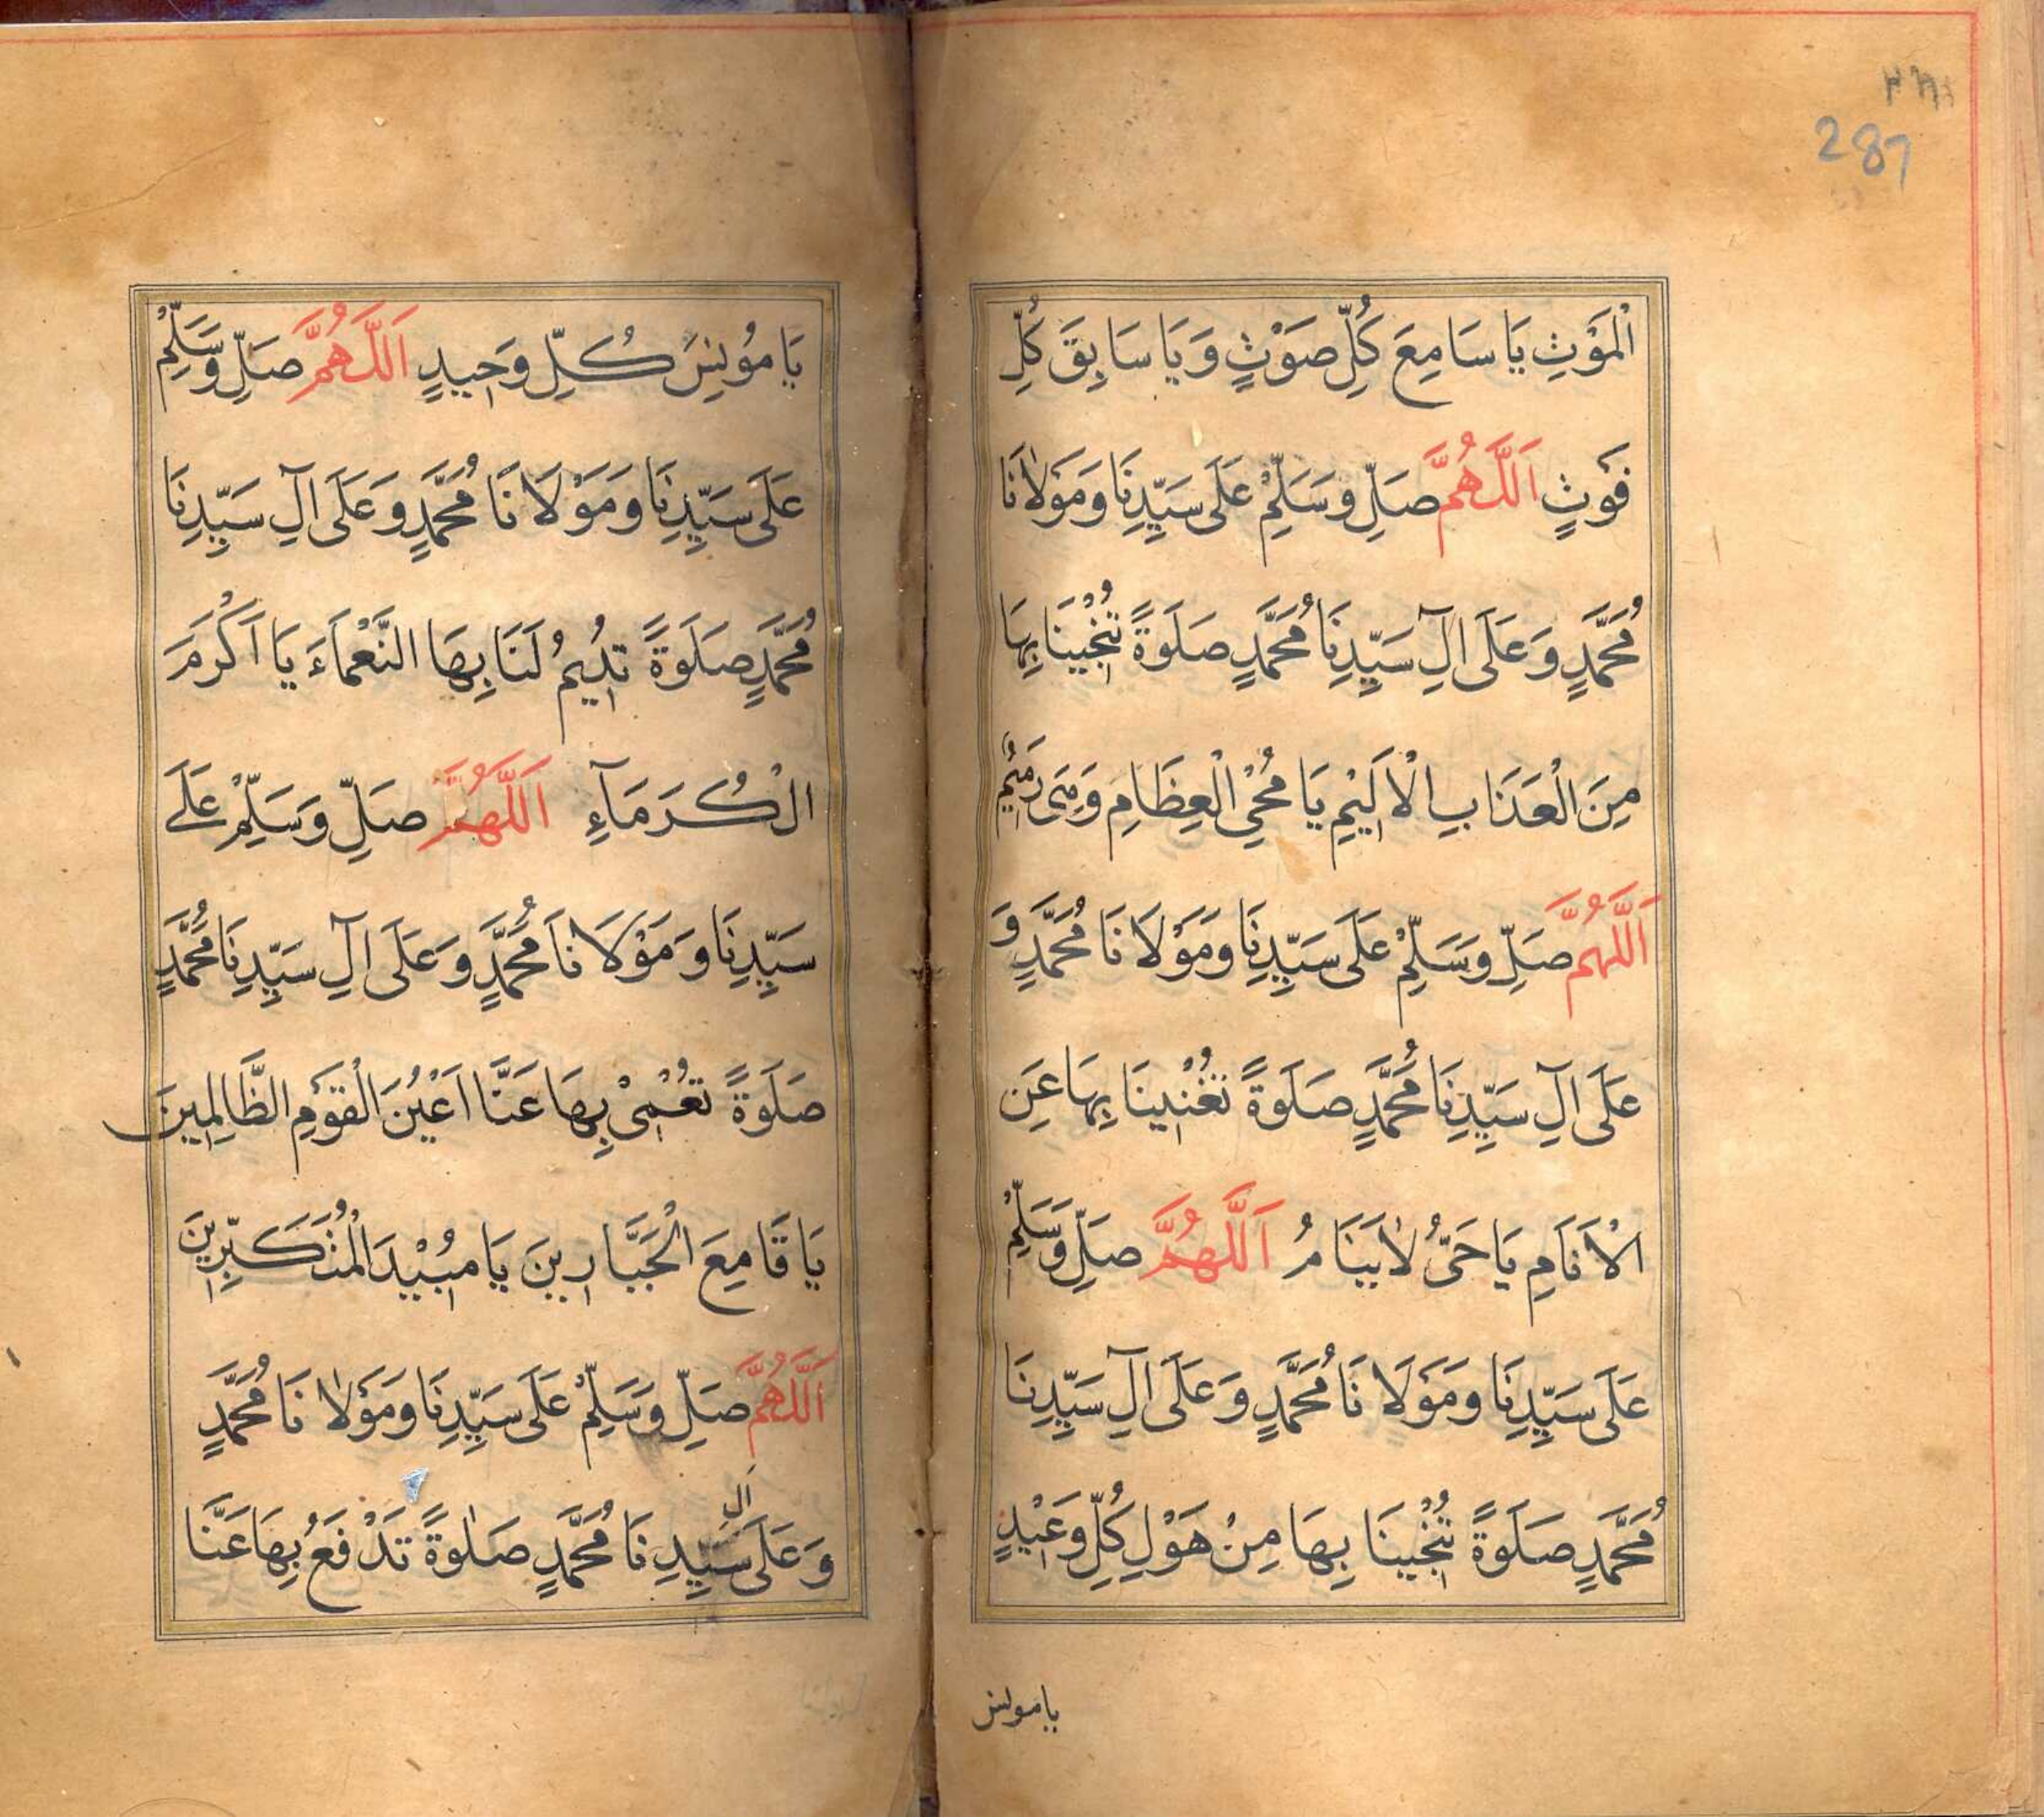 287
الْمَوْتِ يَا سَامِعَ كُلِّ صَوْتٍ وَيَا سَابِقَ كُلِّ
فَوْتٍ اَللّٰهُمَّ صَلِّ وَسَلِّمْ عَلَى سَيِّدِنَا وَمَوْلَانَا
مُحَمَّدٍ وَعَلَى اٰلِ سَيِّدِنَا مُحَمَّدٍ صَلَوةً تُنْجِيْنَا بِهَا
مِنَ الْعَذَابِ الْاَلِيْمِ يَا مُحْيِ الْعِظَامِ وَهِىَ رَمِيْمٌ
اَللّٰهُمَّ صَلِّ وَسَلِّمْ عَلَى سَيِّدِنَا وَمَوْلَانَا مُحَمَّدٍ وَ
عَلَى اٰلِ سَيِّدِنَا مُحَمَّدٍ صَلَوةً تُغْنِيْنَا بِهَا عَنِ
الْاَنَامِ يَا حَىُّ لَا يَنَامُ اَللّٰهُمَّ صَلِّ وَسَلِّمْ
عَلَى سَيِّدِنَا وَمَوْلَانَا مُحَمَّدٍ وَعَلَى اٰلِ سَيِّدِنَا
مُحَمَّدٍ صَلَوةً تُنْجِيْنَا بِهَا مِنْ هَوْلِ كُلِّ وَعِيْدٍ
يا مونس
يَا مُوْنِسَ كُلِّ وَحِيدٍ اَللّٰهُمَّ صَلِّ وَسَلِّمْ
عَلَى سَيِّدِنَا وَمَوْلَانَا مُحَمَّدٍ وَعَلَى اٰلِ سَيِّدِنَا
مُحَمَّدٍ صَلَوةً تُدِيْمُ لَنَا بِهَا النَّعْمَاءَ يَا اَكْرَمَ
الْكُرَمَآءِ اَللّٰهُمَّ صَلِّ وَسَلِّمْ عَلَے
سَيِّدِنَا وَمَوْلَانَا مُحَمَّدٍ وَعَلَى اٰلِ سَيِّدِنَا مُحَمَّدٍ
صَلَوةً تُعْمِىْ بِهَا عَنَّا اَعْيُنَ الْقَوْمِ الظَّالِمِينَ
يَا قَامِعَ الْجَبَّارِيْنَ يَا مُبِيْدَ الْمُتَكَبِّرِيْنَ
اَللّٰهُمَّ صَلِّ وَسَلِّمْ عَلَى سَيِّدِنَا وَمَوْلَانَا مُحَمَّدٍ
وَعَلَى اٰلِ سَيِّدِنَا مُحَمَّدٍ صَلٰوةً تَدْفَعُ بِهَا عَنَّا